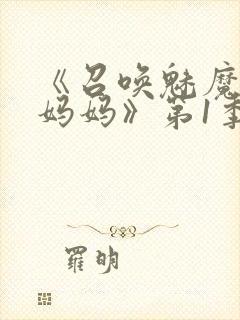 《召唤魅魔
妈妈》第1季
羅明